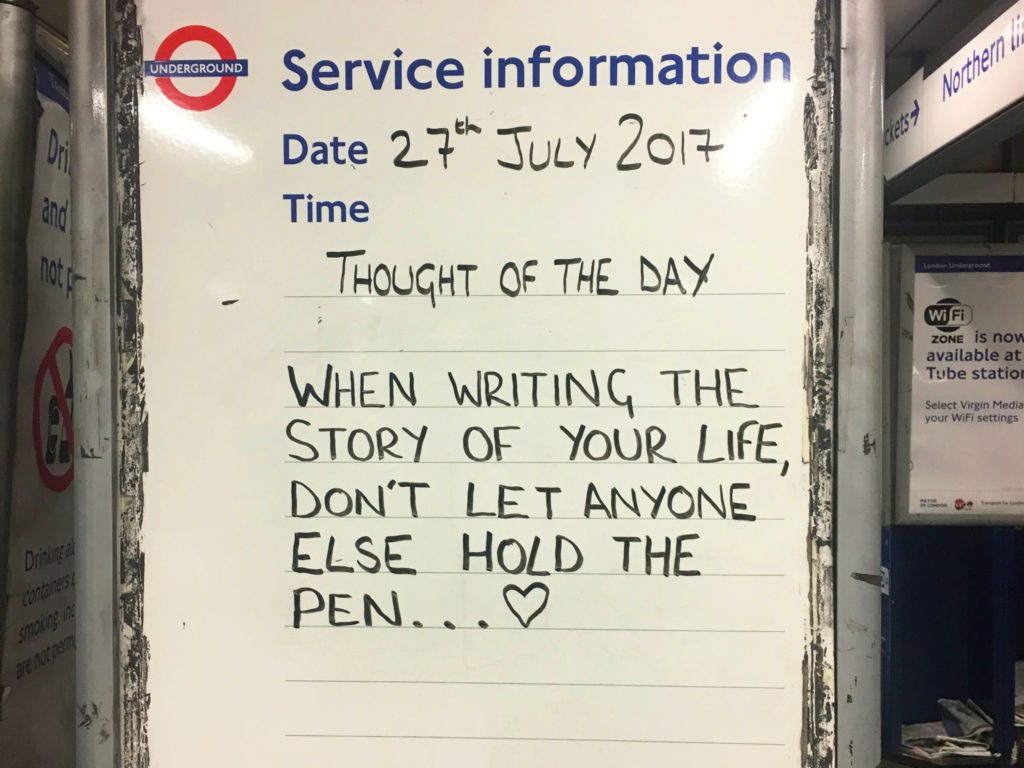 UNDERGROUND
Service information
Date 27th JULY 2017
Time
THOUGHT OF THE DAY
WHEN WRITING THE
STORY OF YOUR LIFE,
DON'T LET ANYONE
ELSE HOLD THE
PEN... ♡
Northern
London Underground
WiFi
ZONE is now
available at
Tube
Select Virgin Media
your WiFi settings
MAYOR
OF LONDON
and
not
Drinking
containers
smoking
are not